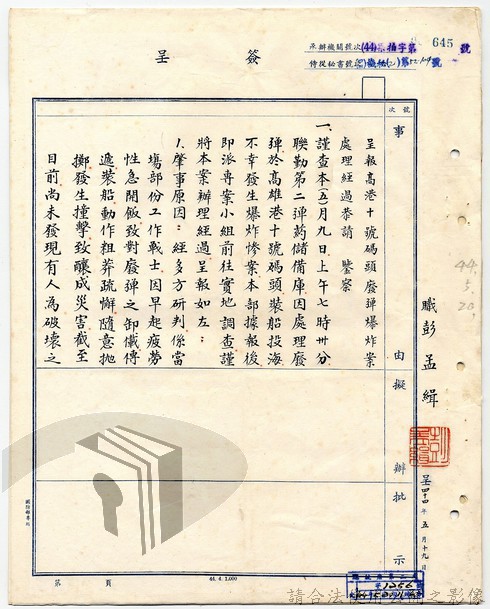 簽呈
承辦機關號次(44)
字第645號
侍從秘書號
號
號次
事由
擬辦
批示
呈報高港十號碼頭廢彈爆炸案
處理經過恭請 鑒察
一、謹查本(五)月九日上午七時卅分
聯勤第二彈葯儲備庫因處理廢
彈於高雄港十號碼頭裝船投海
不幸發生爆炸慘案本部據報後
即派專案小組前往實地調查謹
將本案辦理經過呈報如左:
1.肇事原因:經多方研判係當
場部份工作戰士因早起疲勞
性急開飯致對廢彈之卸儎傳
遞裝船動作粗莽疏懈隨意拋
擲發生撞擊致釀成災害截至
目前尚未發現有人為破壞之
職彭孟緝
呈四十四年五月十九日
44.5.20.
第 頁
44. 4. 1,000
請合法使用
之影像